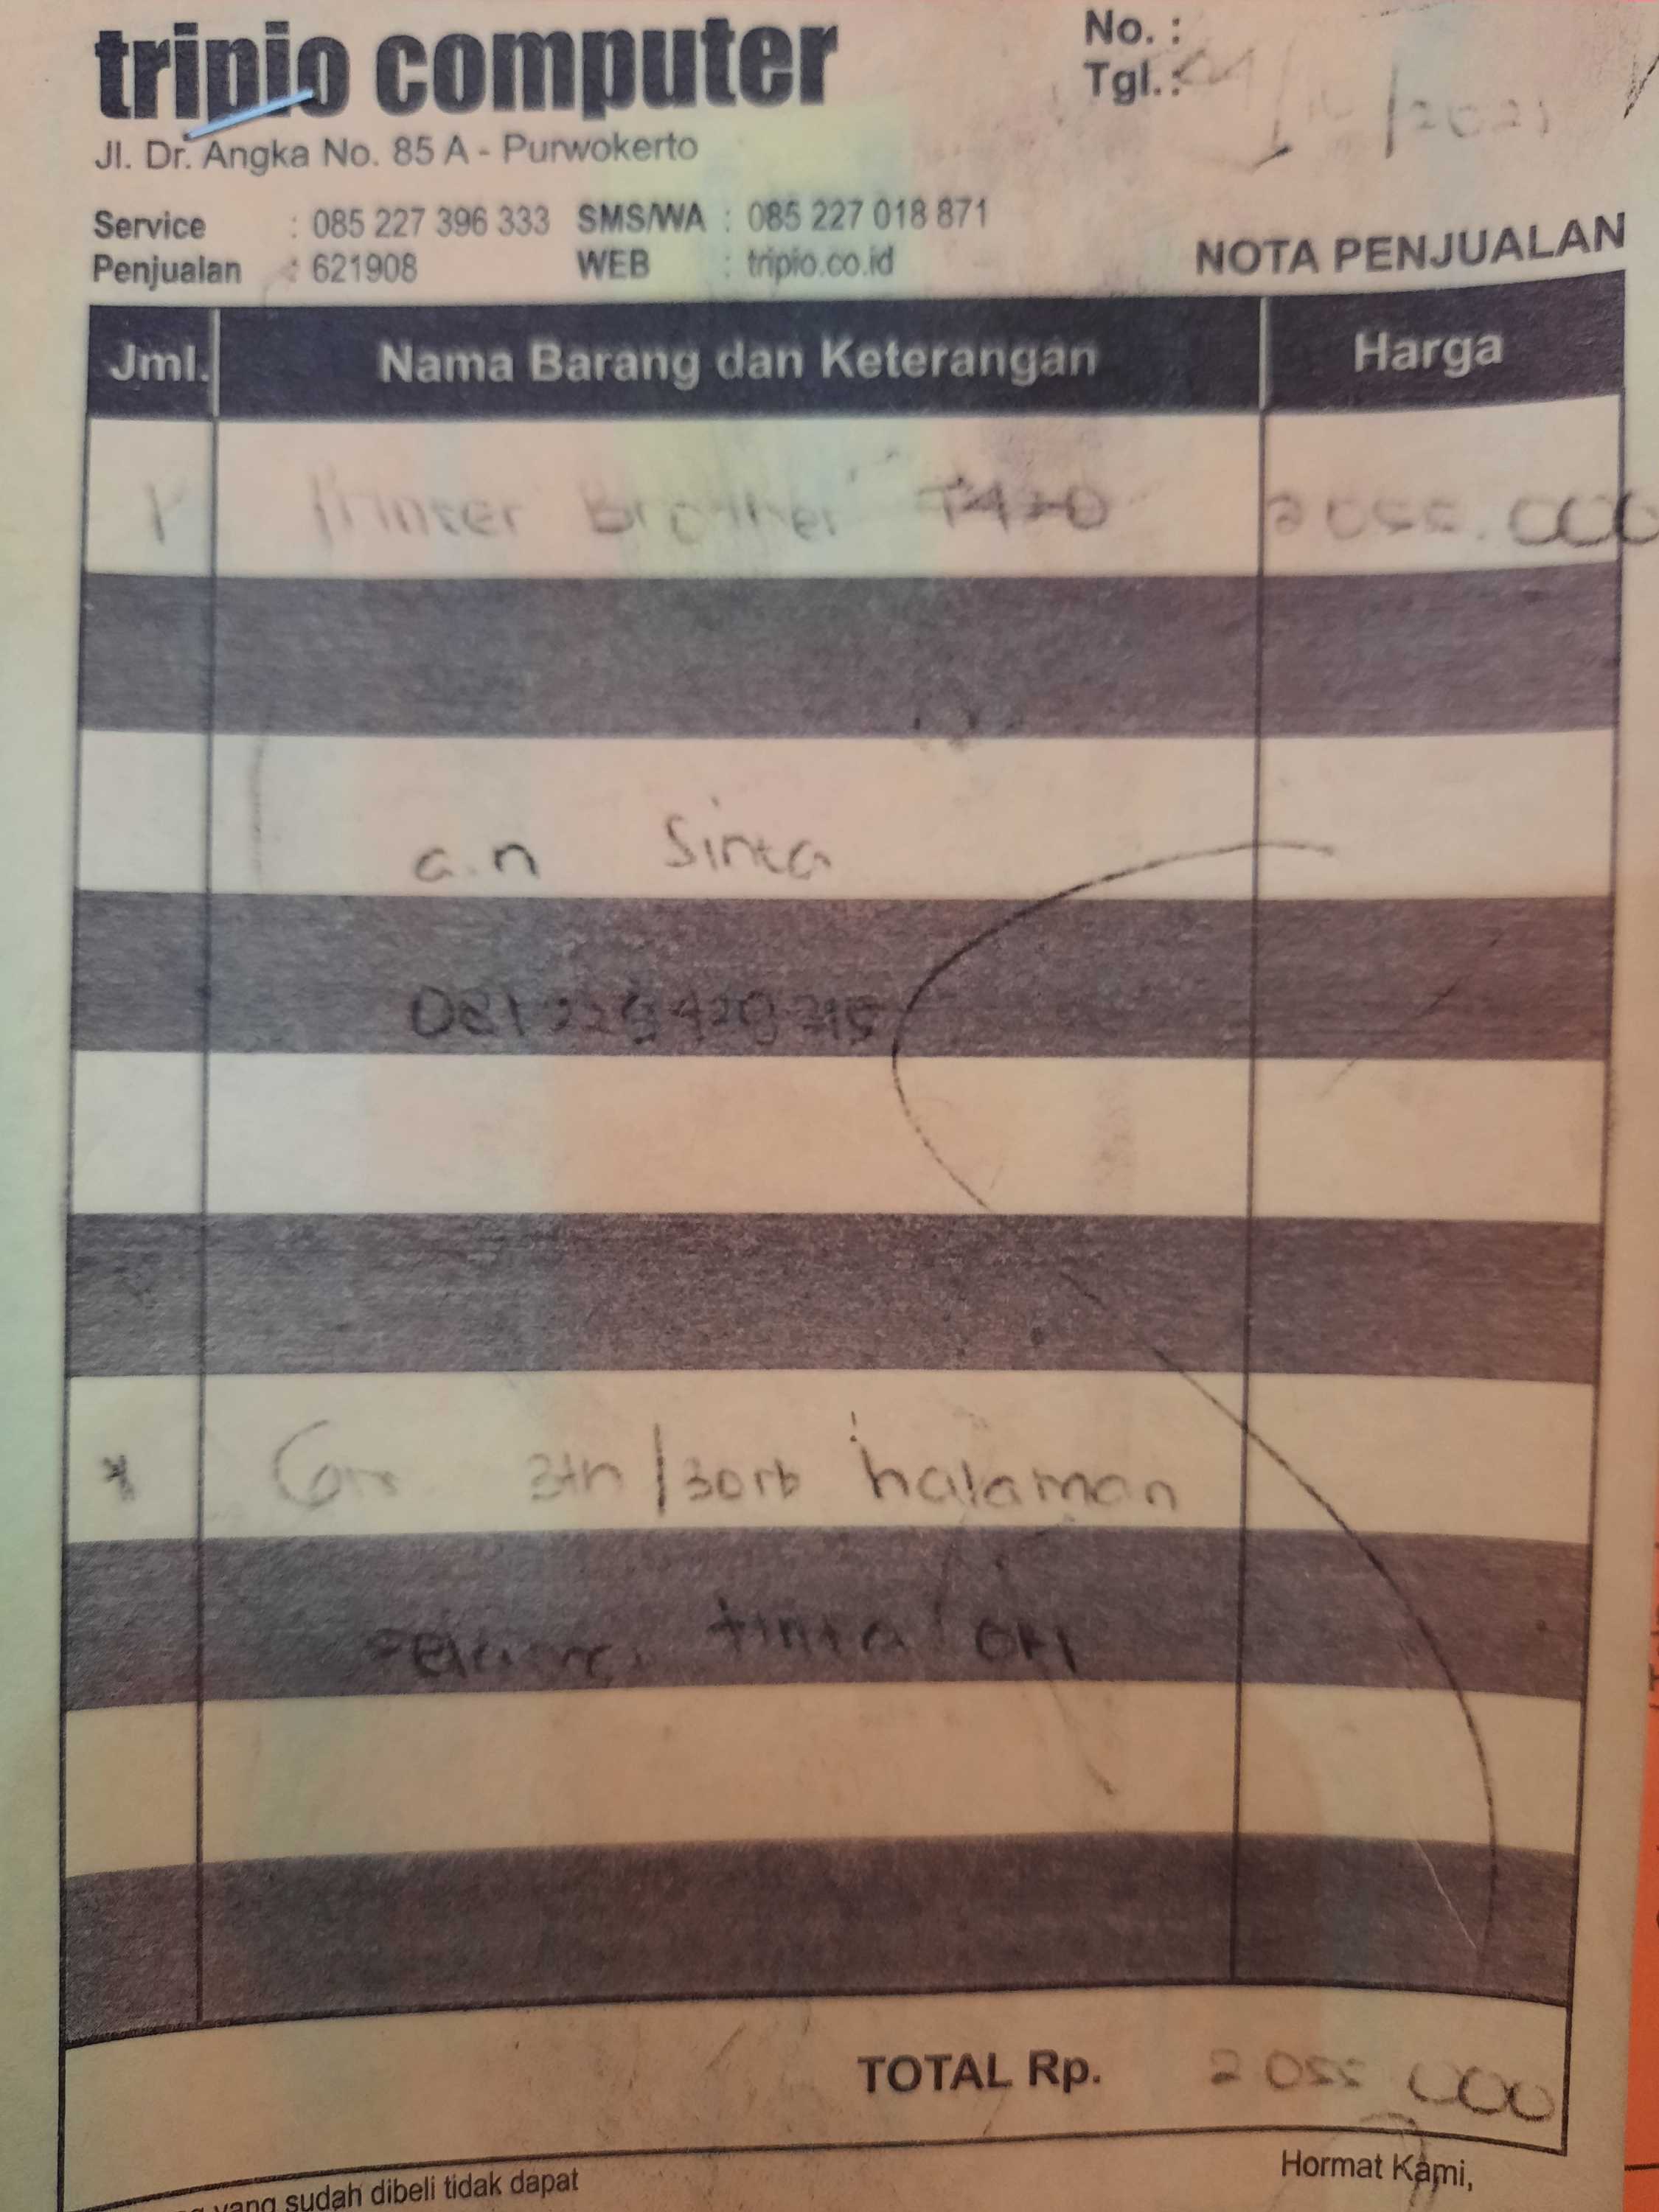 tripio computer
Jl. Dr. Angka No. 85 A - Purwokerto
No. :
Tgl. : /2021
Service : 085 227 396 333 SMS/WA : 085 227 018 871
Penjualan : 621908 WEB : tripio.co.id
NOTA PENJUALAN
Jml. Nama Barang dan Keterangan Harga
1 Printer Brother T420 2055.000
a.n Sinta
* Garr 3th/30rb halaman
tinta ori
TOTAL Rp. 2055 000
yang sudah dibeli tidak dapat
Hormat Kami,